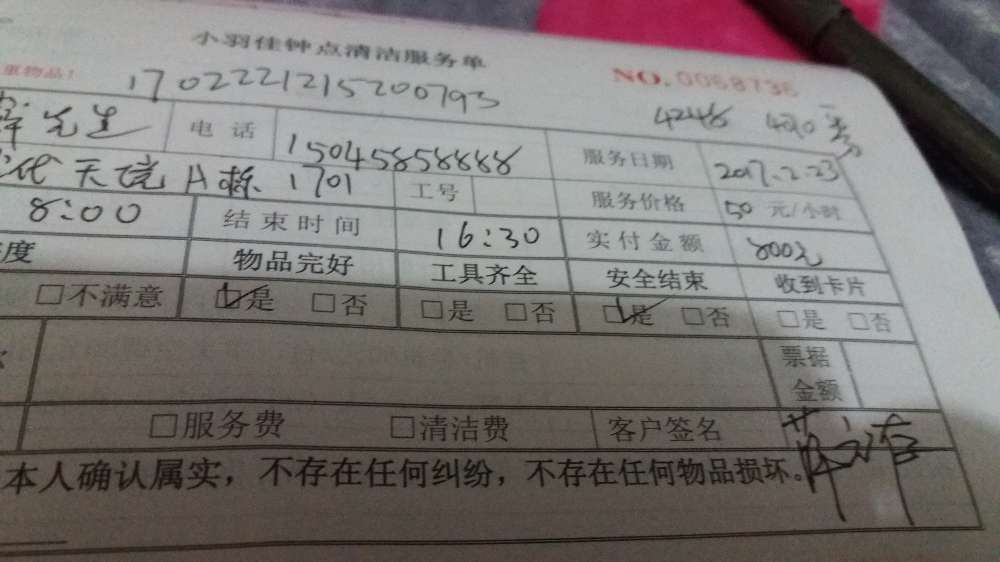 小羽佳钟点清洁服务单
重物品! NO.0068736
1702221215200793
先生 电话 15045858888 服务日期 2017.2.23
天境A栋1701 工号 服务价格 50元/小时
8:00 结束时间 16:30 实付金额 800元
度 物品完好 工具齐全 安全结束 收到卡片
□不满意 ☑是 □否 □是 □否 ☑是 □否 □是 □否
票据
金额
□服务费 □清洁费 客户签名
本人确认属实，不存在任何纠纷，不存在任何物品损坏。